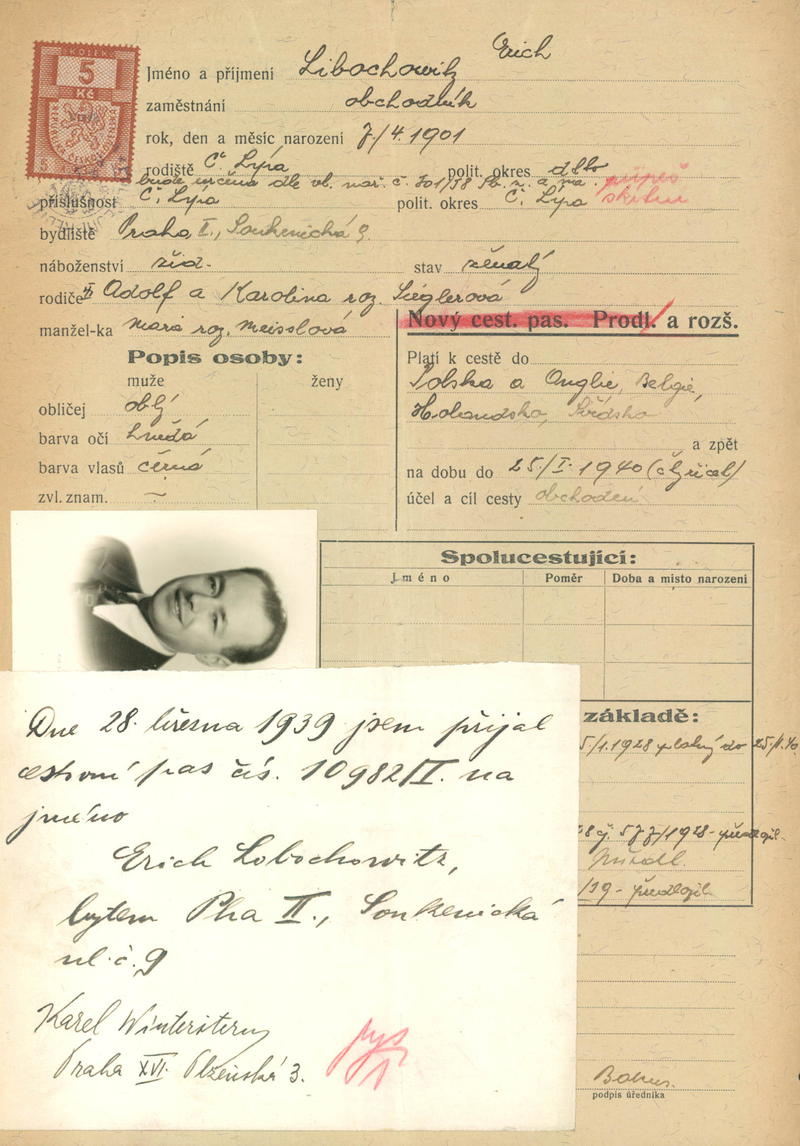 5
Kč
Erich
Jméno a příjmení Libochowitz
zaměstnání obchodník
rok, den a měsíc narození 7./4. 1901
rodiště Č. Lýpa polit. okres dtto
bude určena dle vl. nař. č. 301/38 Sb. z. a na.
příslušnost Č. Lýpa polit. okres Č. Lýpa
bydliště Praha II., Soukenická 9.
náboženství žid. stav ženatý
rodiče Adolf a Karolina roz. Sieglerová
manžel-ka Marie roz. Meisslová
Nový cest. pas. Prodl. a rozš.
Popis osoby:
muže ženy
obličej oblý
barva očí hnědá
barva vlasů černá
zvl. znam. —
Platí k cestě do
Polska a Anglie, Belgie,
Holandska,
a zpět
na dobu do 25./I. 1940
účel a cíl cesty obchodní
Spolucestující:
Jméno Poměr Doba a misto narození
základě:
5/1.1928 platný do 25./I.40
57 7/1928 - předložil
/19 - předložil
podpis úředníka
Dne 28. března 1939 jsem přijal
cestovní pas čís. 10982/II. na
jméno
Erich Lobochowitz,
bytem Pha II., Soukenická
ul. č. 9
Karel Winterstern
Praha XVI. Plzeňská 3.